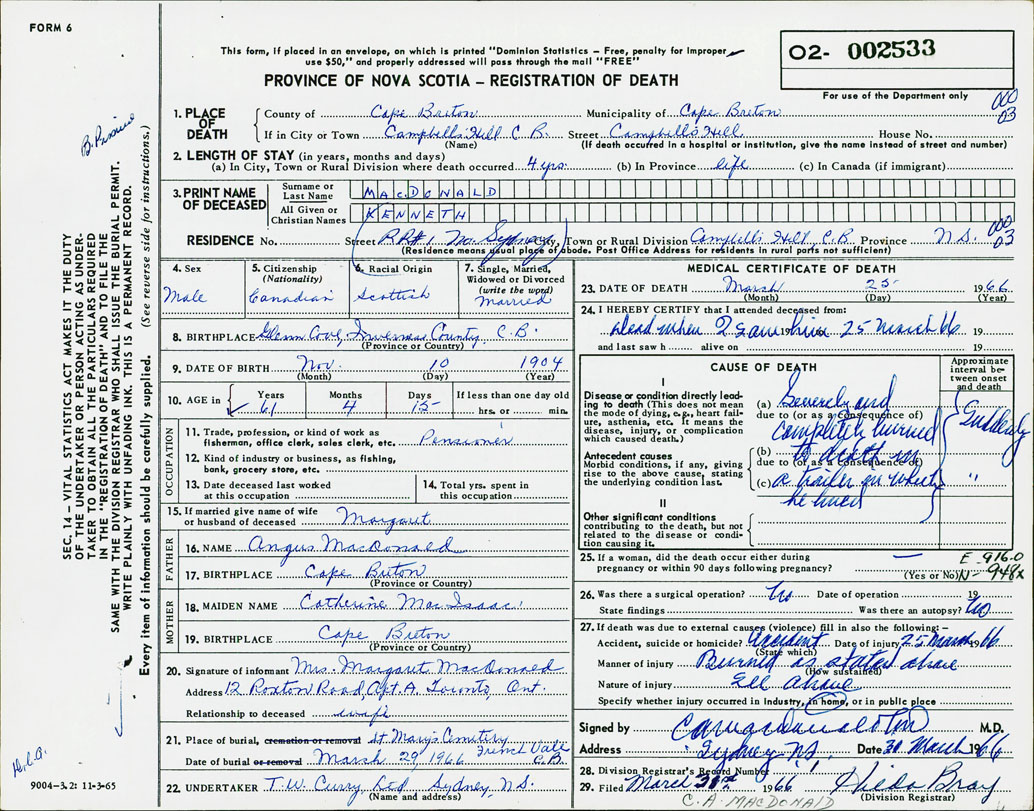 FORM 6
This form, if placed in an envelope, on which is printed "Dominion Statistics – Free, penalty for improper
use $50," and properly addressed will pass through the mail "FREE"
PROVINCE OF NOVA SCOTIA – REGISTRATION OF DEATH
O2- 002533
For use of the Department only
000
03
1. PLACE OF DEATH
County of Cape Breton Municipality of Cape Breton
If in City or Town Campbells Hill C B. Street Campbells Hill House No.
(Name) (If death occurred in a hospital or institution, give the name instead of street and number)
2. LENGTH OF STAY (in years, months and days)
(a) In City, Town or Rural Division where death occurred. 4 yrs. (b) In Province life (c) In Canada (if immigrant)
3. PRINT NAME OF DECEASED
Surname or Last Name MACDONALD
All Given or Christian Names KENNETH
RESIDENCE No. Street RR#1 No. Sydney City, Town or Rural Division Campbells Hill, C.B. Province N.S.
000
03
(Residence means usual place of abode. Post Office Address for residents in rural parts not sufficient)
4. Sex
Male
5. Citizenship
(Nationality)
Canadian
6. Racial Origin
Scottish
7. Single, Married,
Widowed or Divorced
(write the word)
Married
8. BIRTHPLACE Glenn Cove, Inverness County, C.B.
(Province or Country)
9. DATE OF BIRTH Nov. 10 1904
(Month) (Day) (Year)
10. AGE in
Years Months Days If less than one day old
61 4 15 hrs. or min.
OCCUPATION
11. Trade, profession, or kind of work as
fisherman, office clerk, sales clerk, etc. Pensioner
12. Kind of industry or business, as fishing,
bank, grocery store, etc.
13. Date deceased last worked
at this occupation
14. Total yrs. spent in
this occupation
15. If married give name of wife
or husband of deceased Margaret
FATHER
16. NAME Angus MacDonald
17. BIRTHPLACE Cape Breton
(Province or Country)
MOTHER
18. MAIDEN NAME Catherine MacIsaac
19. BIRTHPLACE Cape Breton
(Province or Country)
20. Signature of informant Mrs. Margaret MacDonald
Address 12 Roxton Road, Apt. A, Toronto, Ont.
Relationship to deceased wife
21. Place of burial, cremation or removal St Mary's Cemetery
French Vale
Date of burial or removal March 29, 1966 C.B.
22. UNDERTAKER T.W. Curry Ltd Sydney, N.S.
(Name and address)
MEDICAL CERTIFICATE OF DEATH
23. DATE OF DEATH March 25 1966
(Month) (Day) (Year)
24. I HEREBY CERTIFY that I attended deceased from:
dead when I saw him 25 March 66 19
and last saw h alive on 19
CAUSE OF DEATH
Approximate
interval be-
tween onset
and death
I
Disease or condition directly lead-
ing to death (This does not mean
the mode of dying, e.g., heart fail-
ure, asthenia, etc. It means the
disease, injury, or complication
which caused death.)
Antecedent causes
Morbid conditions, if any, giving
rise to the above cause, stating
the underlying condition last.
(a) Severely and
due to (or as a consequence of)
completely burned
(b) to death in
due to (or as a consequence of)
(c) a trailer in which
he lived
Suddenly
"
II
Other significant conditions
contributing to the death, but not
related to the disease or condi-
tion causing it.
25. If a woman, did the death occur either during
pregnancy or within 90 days following pregnancy? —
(Yes or No)
E-916.0
N-948x
26. Was there a surgical operation? No Date of operation 19
State findings Was there an autopsy? No
27. If death was due to external causes (violence) fill in also the following:–
Accident, suicide or homicide? Accident Date of injury 25 March 1966
(State which)
Manner of injury Burned as stated above
(How sustained)
Nature of injury See above
Specify whether injury occurred in Industry, in home, or in public place
Signed by M.D.
Address Sydney N.S. Date 30 March 1966
28. Division Registrar's Record Number
29. Filed March 1966 Hilda Bray
(Division Registrar)
C. A. MACDONALD
SEC. 14 – VITAL STATISTICS ACT MAKES IT THE DUTY
OF THE UNDERTAKER OR PERSON ACTING AS UNDER-
TAKER TO OBTAIN ALL THE PARTICULARS REQUIRED
IN THE "REGISTRATION OF DEATH" AND TO FILE THE
SAME WITH THE DIVISION REGISTRAR WHO SHALL ISSUE THE BURIAL PERMIT.
WRITE PLAINLY WITH UNFADING INK. THIS IS A PERMANENT RECORD.
Every item of information should be carefully supplied. (See reverse side for instructions.)
9004-3.2: 11-3-65